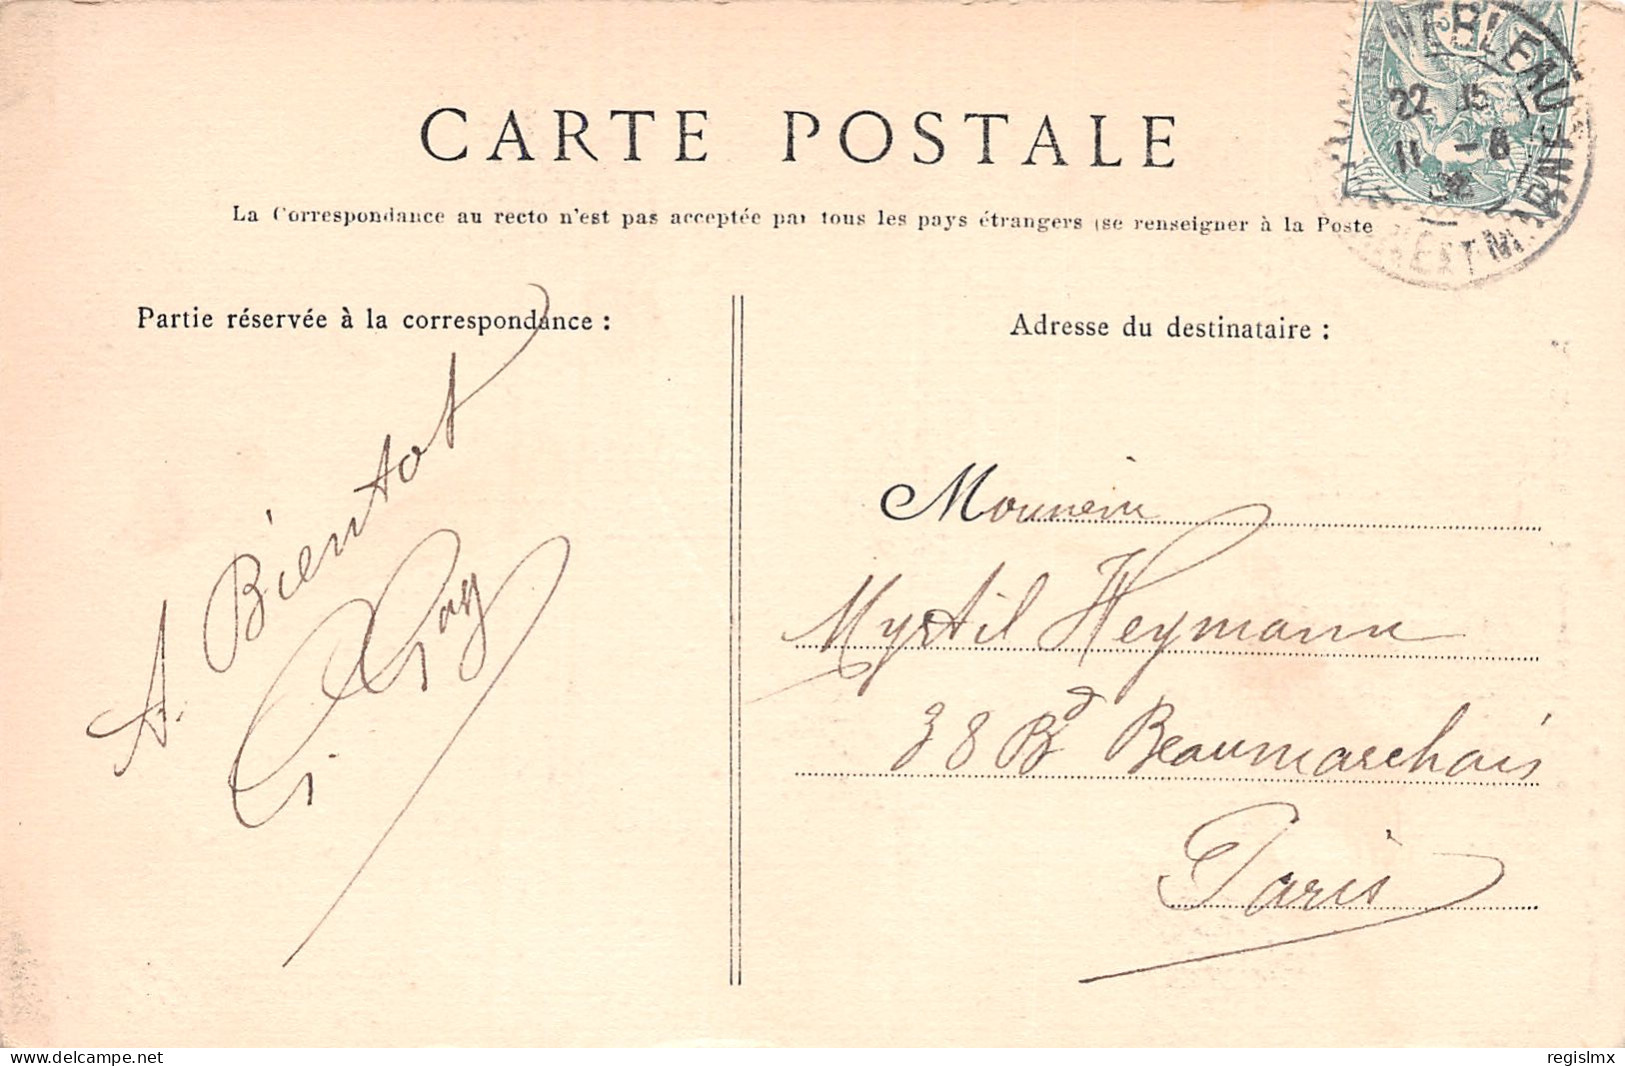 CARTE POSTALE
La Correspondance au recto n'est pas acceptée par tous les pays étrangers (se renseigner à la Poste
NEBLEAU
22 15
11 -8
ET M
Partie réservée à la correspondance :
Adresse du destinataire :
A. Bientot
Monsieur
Myrtil Heymann
38 Bd Beaumarchais
Paris
www.delcampe.net
regislmx